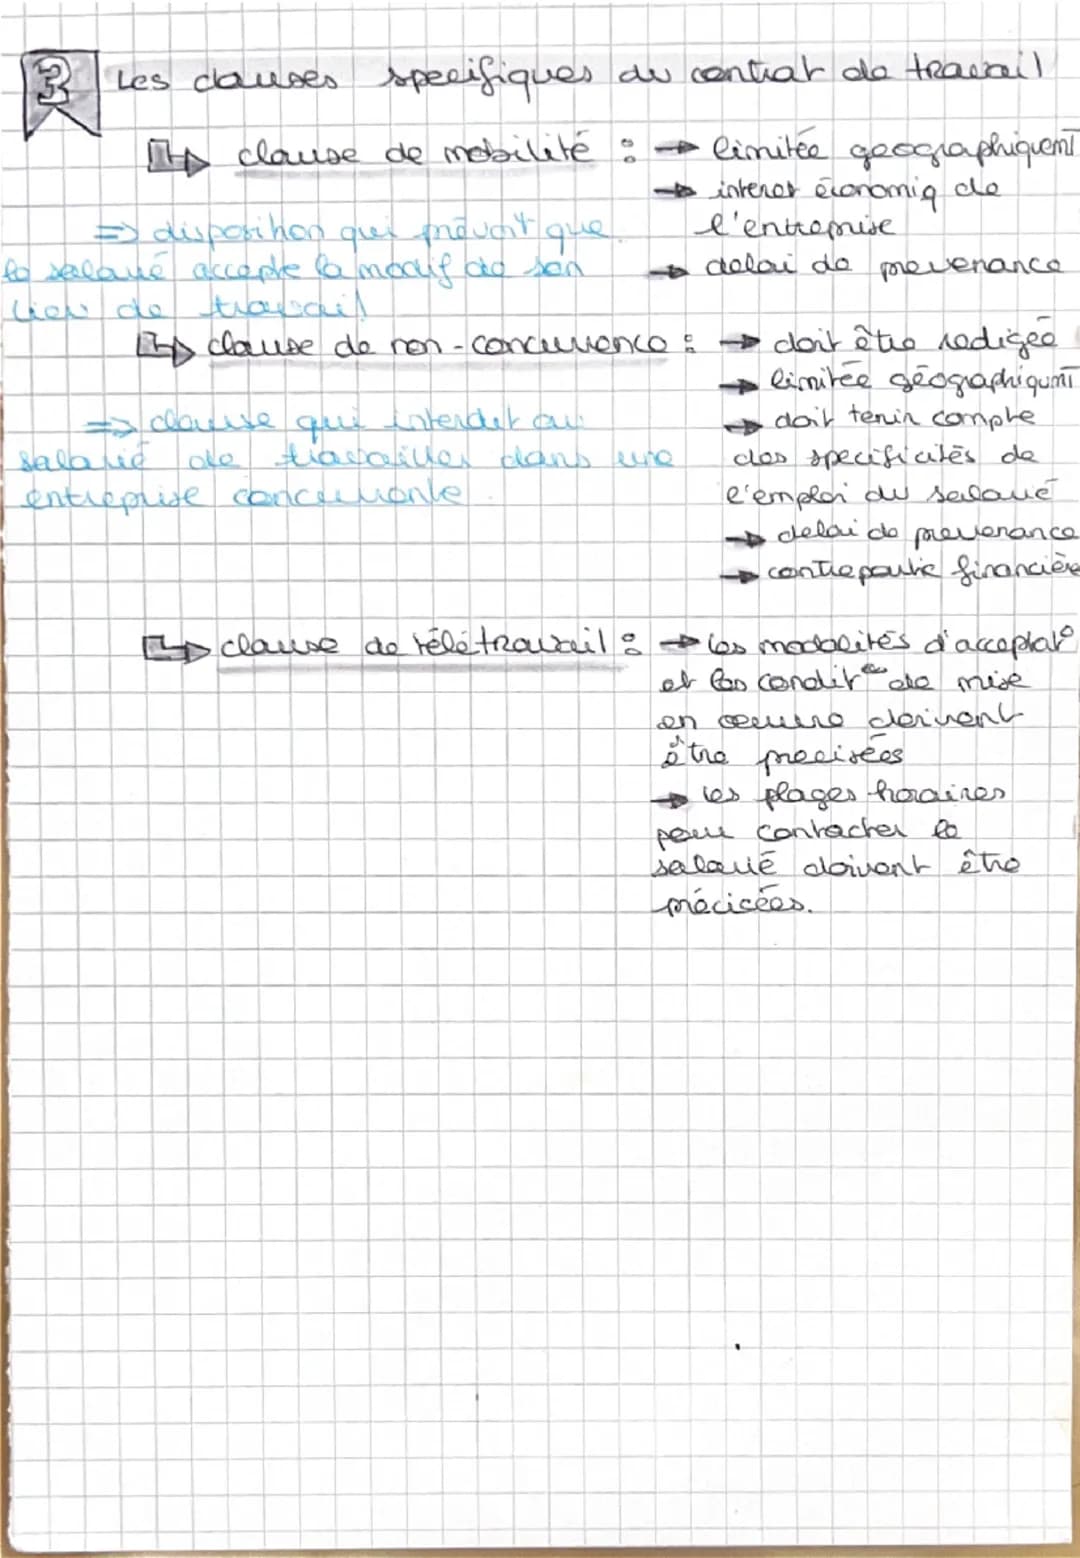 3 Les clauses specifiques du contrat de travail
clause de mobilité : → limitée geographiquemt
→ interet économiq de
l'entreprise
→ delai de prevenance
=> disposition qui prévoit que
le salarié accepte la modif de son
lieu de travail
clause de non-concurrence : → doit être redigée
→ limitée géographiqumt
→ doit tenir compte
des specificités de
l'emploi du salarié
→ delai de prevenance
→ contrepartie financière
=> clause qui interdit au
salarié de travailler dans une
entreprise concurrente
clause de télétravail : → les modalités d'acceptat°
et les condit° de mise
en oeuvre doivent
être precisées
→ les plages horaires
pour contacter le
salarié doivent être
précicées.